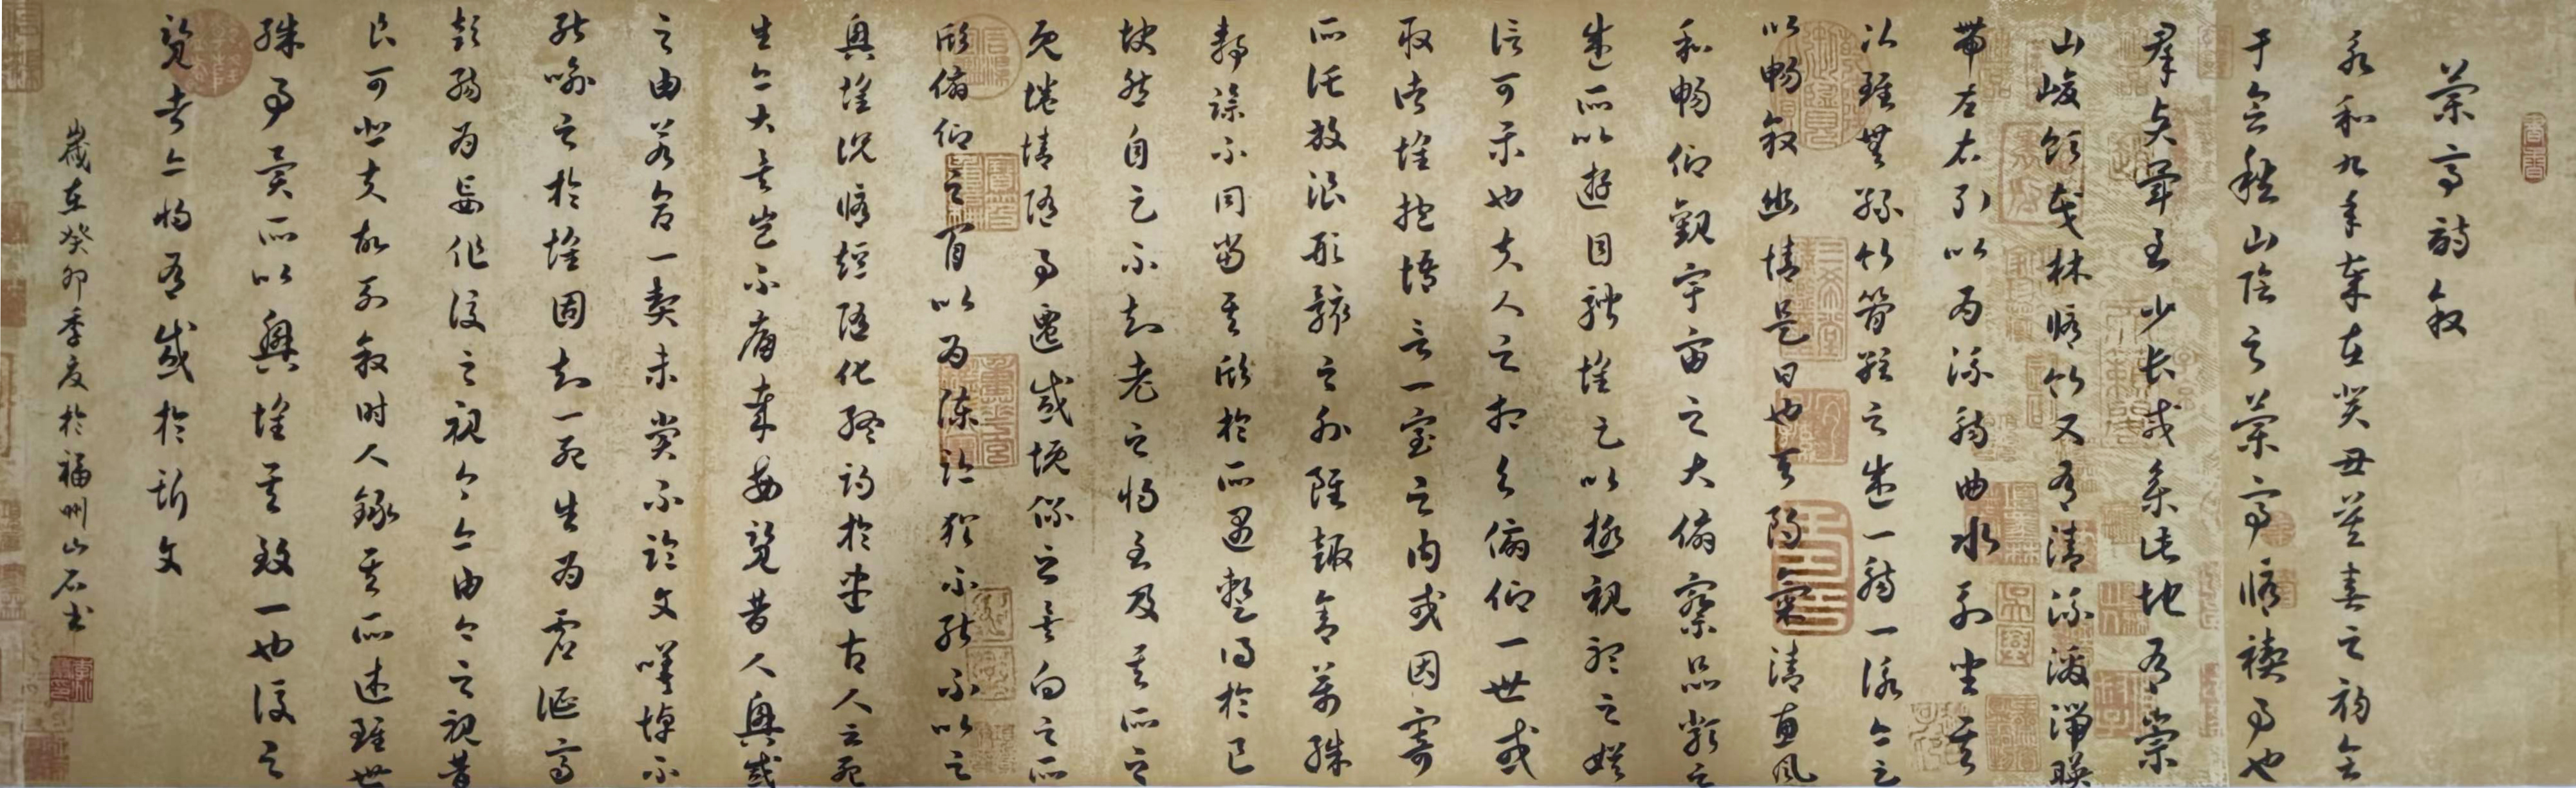 蘭亭詩叙
永和九年歲在癸丑莫春之初會
于會稽山陰之蘭亭脩禊事也
羣賢畢至少長咸集此地有崇
山峻領茂林脩竹又有清流激湍暎
帶左右引以為流觴曲水列坐其
次雖無絲竹管絃之盛一觴一詠亦足
以暢叙幽情是日也天朗氣清惠風
和暢仰觀宇宙之大俯察品類之
盛所以遊目騁懷足以極視聽之娛
信可樂也夫人之相與俯仰一世或
取諸懷抱悟言一室之內或因寄
所託放浪形骸之外雖趣舍萬殊
靜躁不同當其欣於所遇蹔得於己
快然自足不知老之將至及其所之
既惓情隨事遷感慨係之矣向之所
欣俯仰之間以為陳跡猶不能不以之
興懷況脩短隨化終期於盡古人云死
生亦大矣豈不痛哉每覽昔人興感
之由若合一契未嘗不臨文嗟悼不
能喻之於懷固知一死生為虛誕齊
彭殤為妄作後之視今亦由今之視昔
良可悲夫故列叙時人錄其所述雖世
殊事異所以興懷其致一也後之
覽者亦將有感於斯文
歲在癸卯季夏於福州山石書